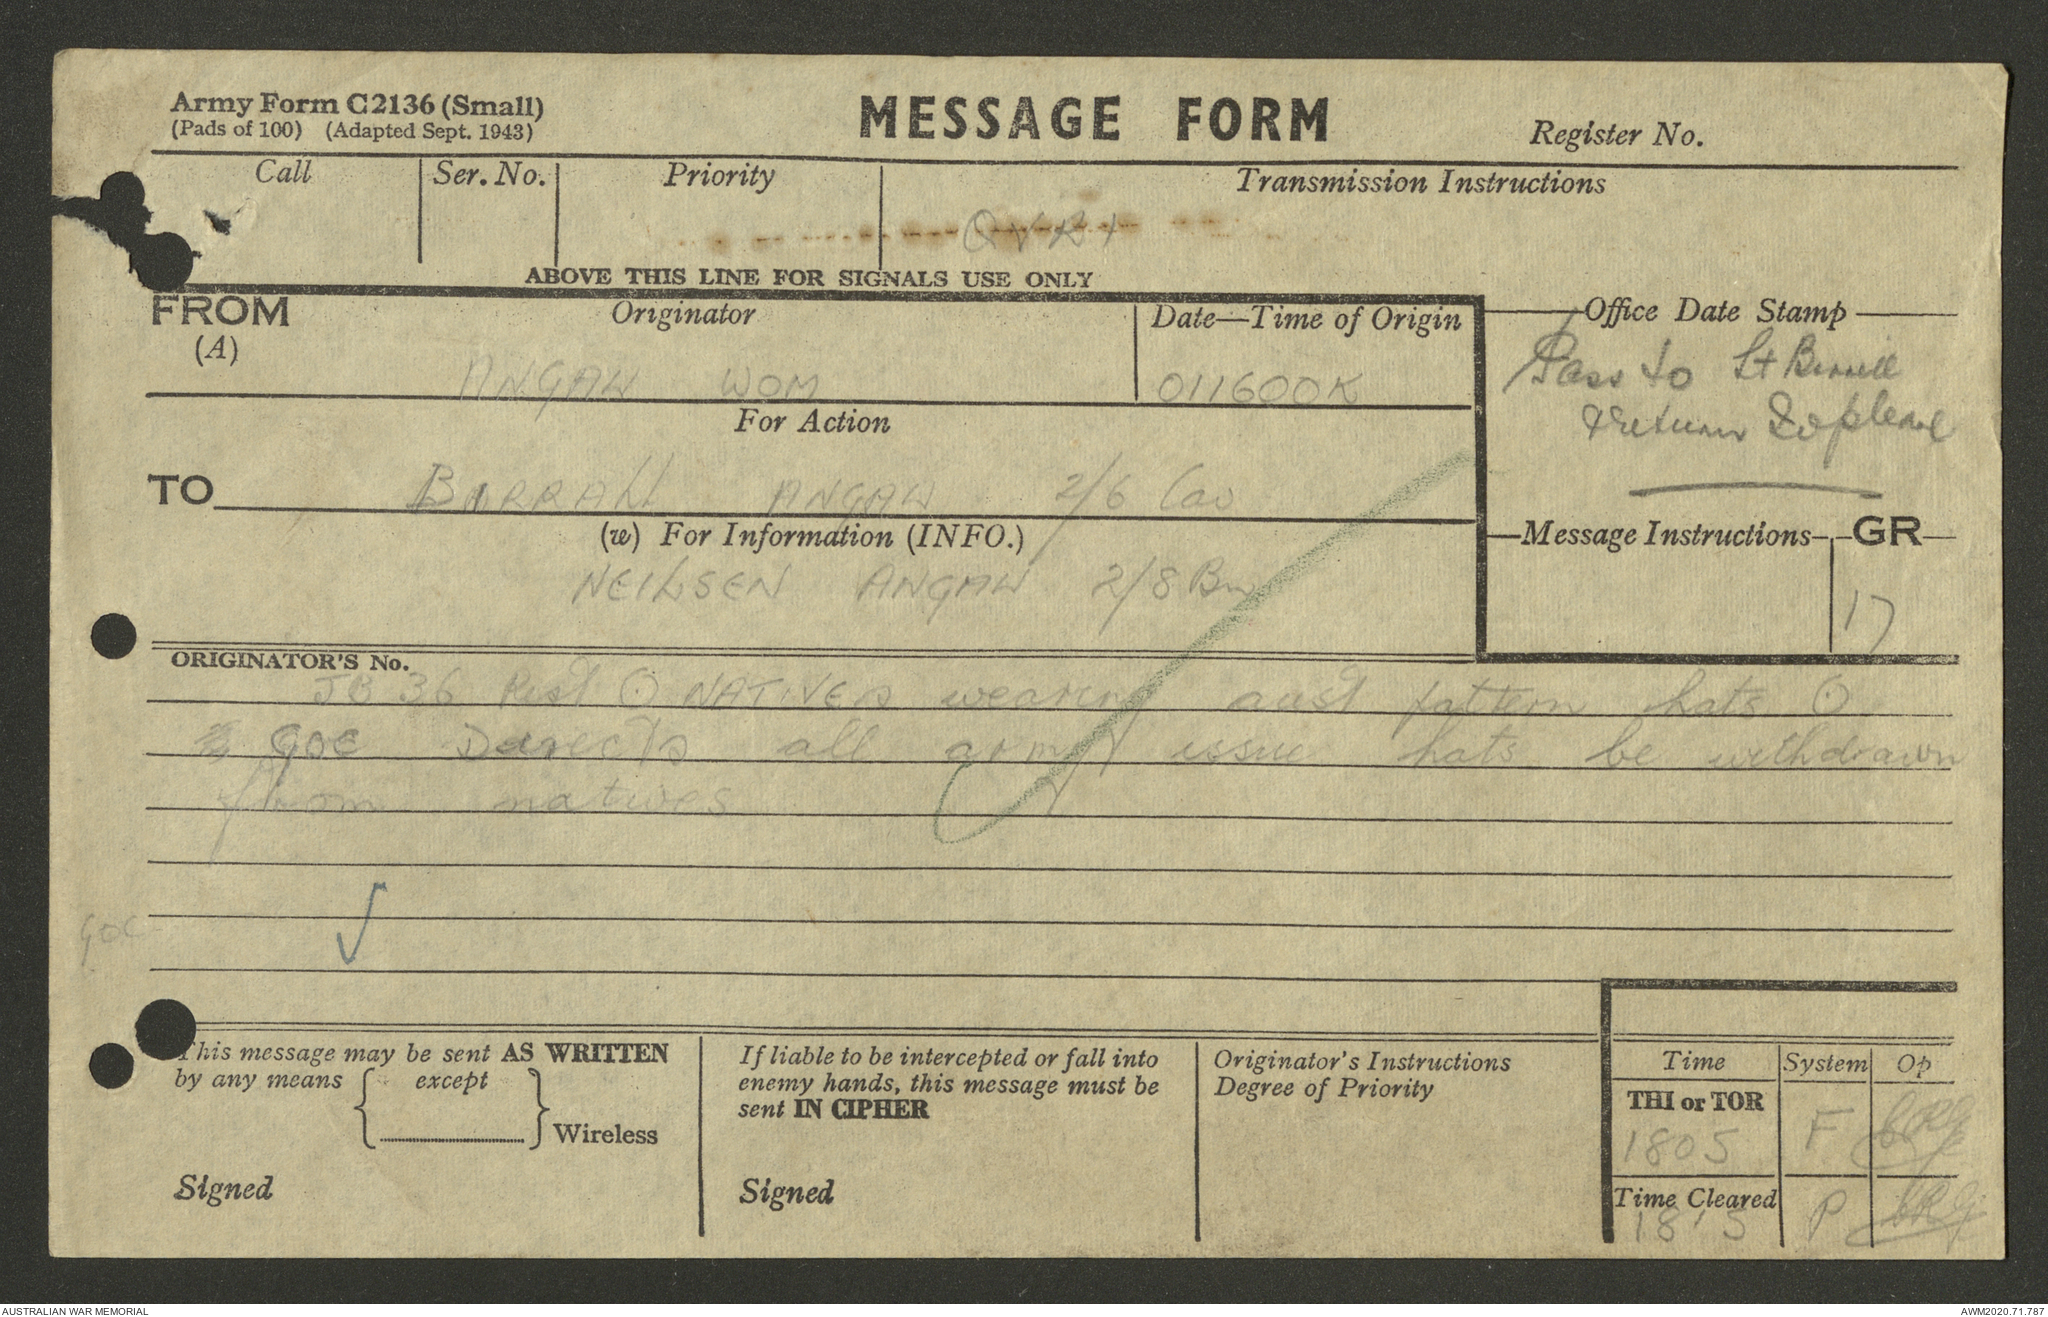 Army Form C2136 (Small)
(Pads of 100) (Adapted Sept. 1943)
MESSAGE FORM
Register No.
Call
Ser. No.
Priority
Transmission Instructions
ABOVE THIS LINE FOR SIGNALS USE ONLY
FROM
(A)
Originator
Date—Time of Origin
Office Date Stamp
ANGAW WOM
011600K
Pass to Lt
return
For Action
TO
ANGAW 2/6 Cav
(w) For Information (INFO.)
Message Instructions
GR
NEILSEN ANGAW 2/8 Bn
17
ORIGINATOR'S No.
JB 36 Rest O NATIVES wearing aust pattern hats O
GOC Directs all army issue hats be withdrawn
from natives
GOC
This message may be sent AS WRITTEN
by any means except
Wireless
Signed
If liable to be intercepted or fall into
enemy hands, this message must be
sent IN CIPHER
Signed
Originator's Instructions
Degree of Priority
Time System Op
THI or TOR
1805 F
Time Cleared
P
AUSTRALIAN WAR MEMORIAL
AWM2020.71.787